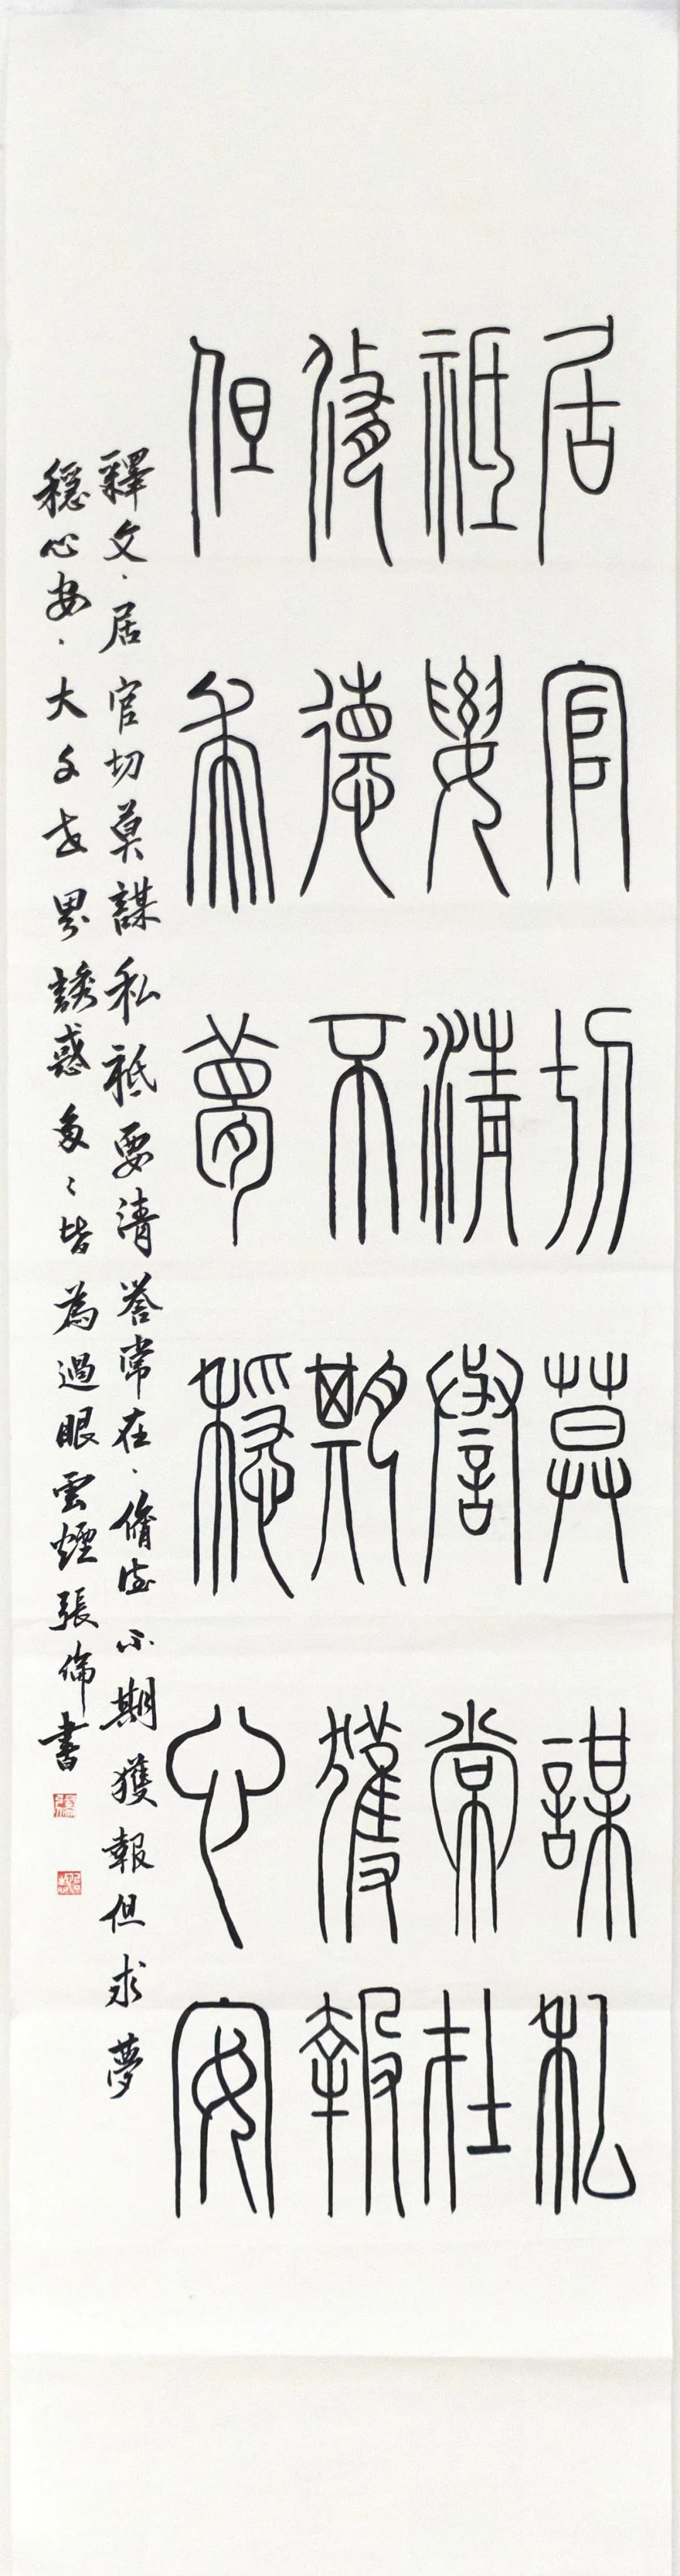 居官切莫謀私
祇要清譽常在
脩德不期獲報
但求夢穩心安
釋文·居官切莫謀私祇要清譽常在·脩德不期獲報但求夢
穩心安·大千世界誘惑多多皆為過眼雲煙張倫書